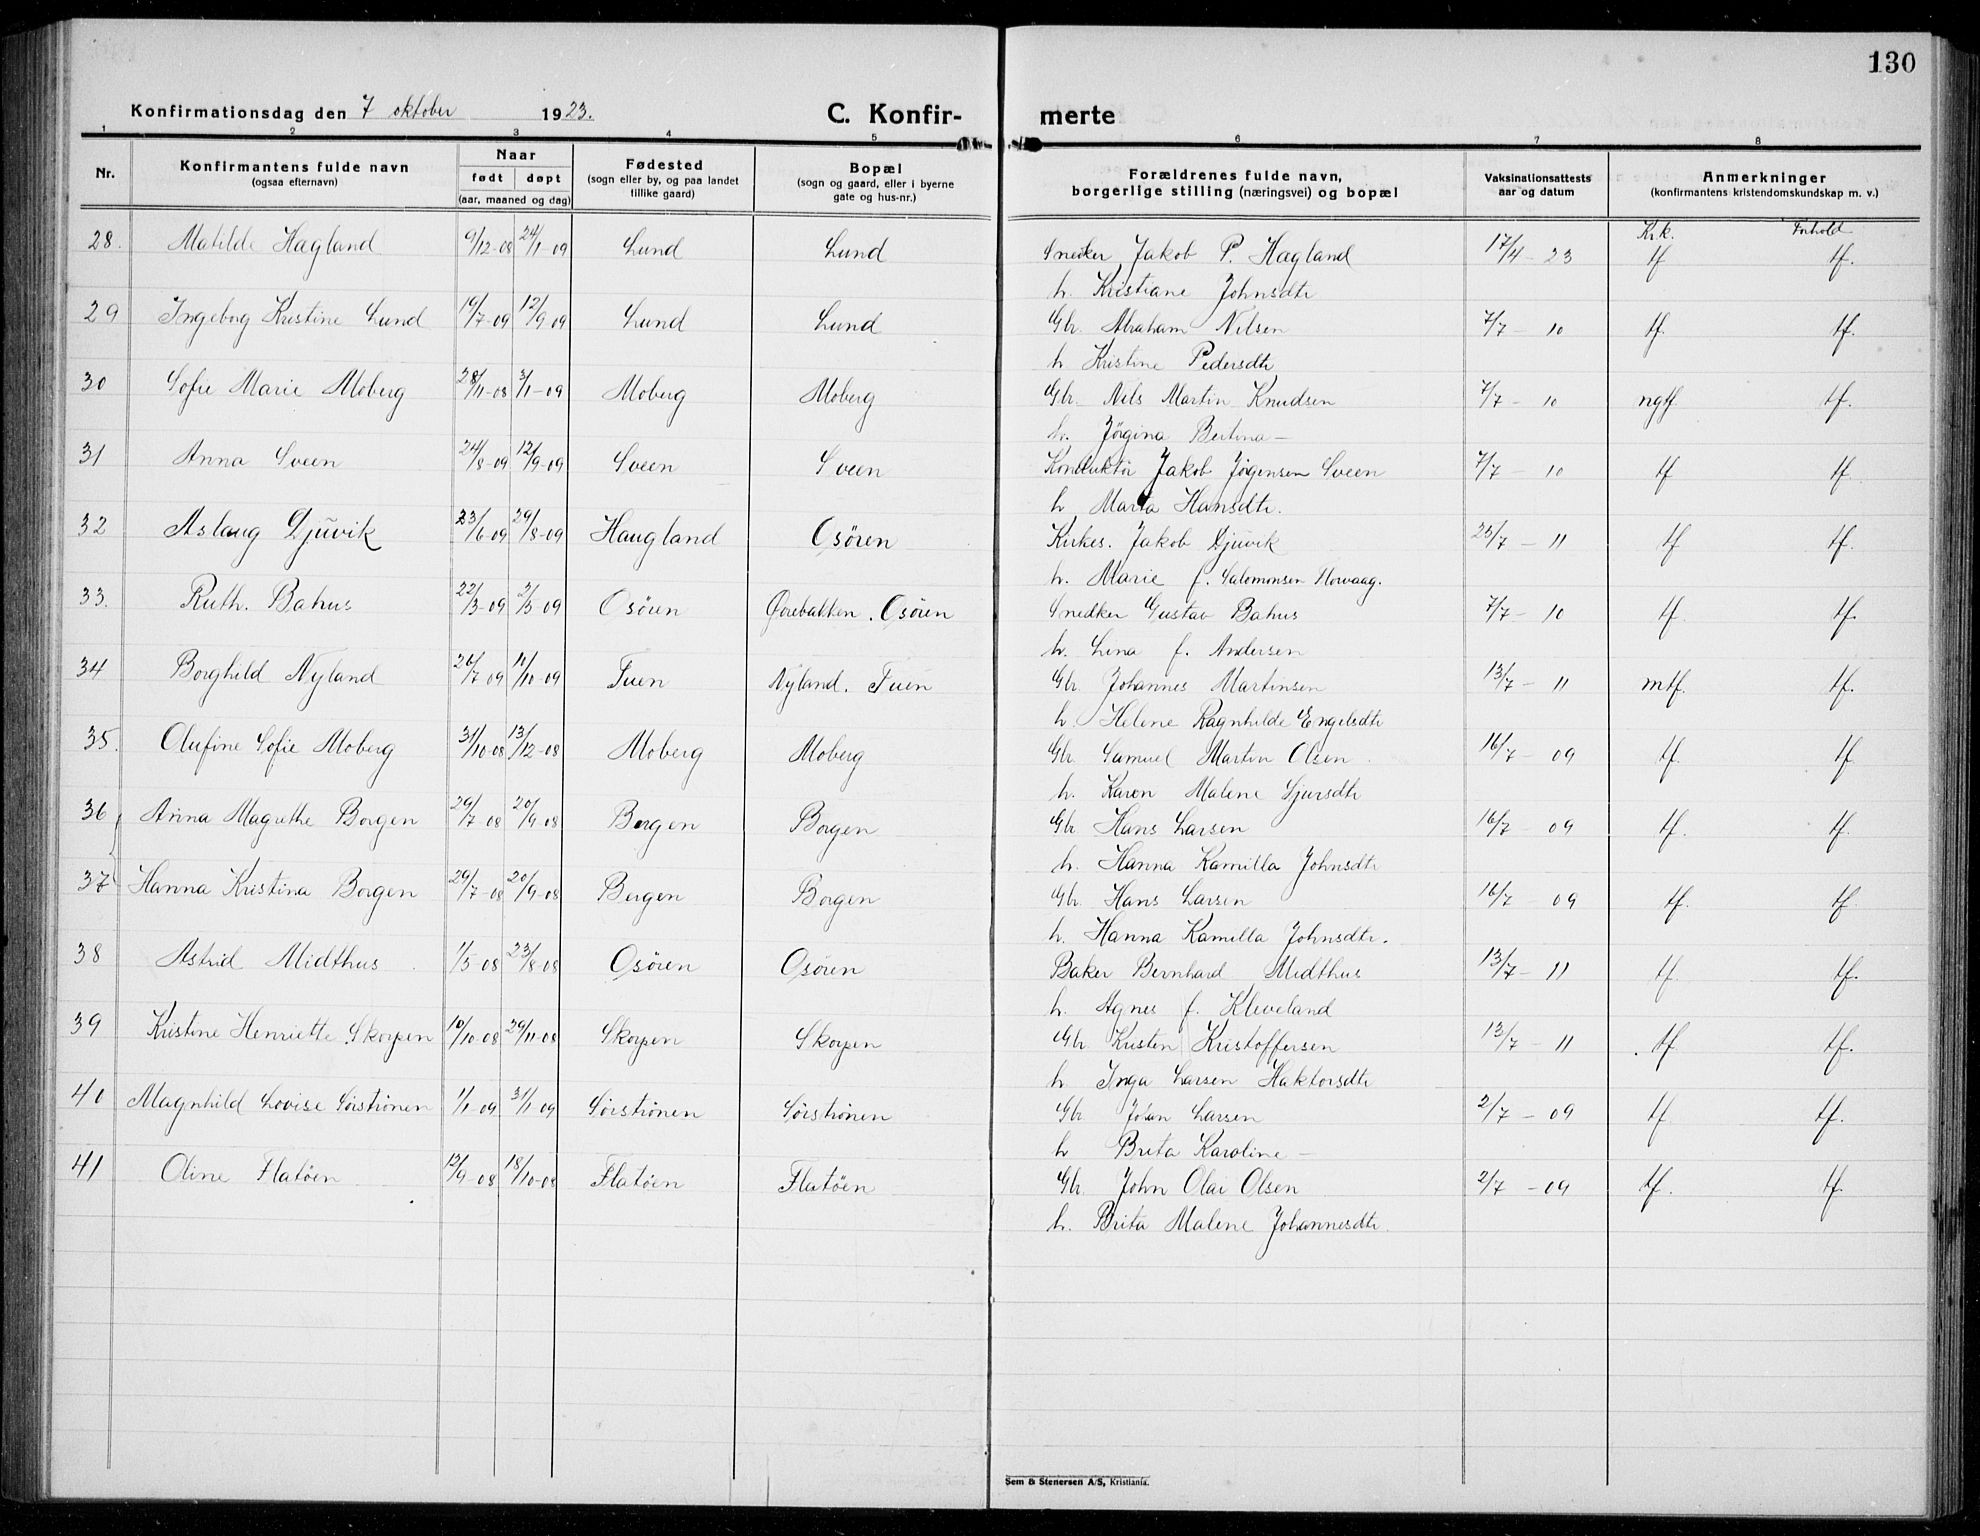 130
Konfirmationsdag den 7 oktober 1923.
C. Konfir-
merte
1 2 3 4 5 6 7 8
Nr.
Konfirmantens fulde navn
(ogsaa efternavn)
Naar
født døpt
(aar, maaned og dag)
Fødested
(sogn eller by, og paa landet
tillike gaard)
Bopæl
(sogn og gaard, eller i byerne
gate og hus-nr.)
Forældrenes fulde navn,
borgerlige stilling (næringsvei) og bopæl
Vaksinationsattests
aar og datum
Anmerkninger
(konfirmantens kristendomskundskap m. v.)
Krk. Forhold
28. Matilde Hagland 9/12-08 24/1-09 Lund Lund Snedker Jakob P. Hagland 17/4-23 tf tf.
h. Kristiane Johnsdtr
29 Ingeborg Kristine Lund 19/7-09 12/9-09 Lund Lund Gbr. Abraham Nilsen 7/7-10 tf. tf.
h. Kristine Pedersdtr
30 Sofie Marie Moberg 28/11-08 3/1-09 Moberg Moberg Gbr. Nils Martin Knudsen 7/7-10 ngtf tf.
h. Jørgina Bertina -
31 Anna Sveen 24/8-09 12/9-09 Sveen Sveen Konduktør Jakob Jørgensen Sveen 7/7-10 tf tf.
h Marta Hansdtr.
32 Aslaug Djuvik 23/6-09 29/8-09 Haugland Osören Kirkes. Jakob Djuvik 25/7-11 tf tf.
h. Marie f. Salomonsen Norvaag.
33. Ruth. Bahus 22/3-09 2/5-09 Osören Ørebakken. Osören Snedker Gustav Bahus 7/7-10 tf. tf.
h. Lina f. Andersen
34 Borghild Nyland 26/7-09 10/10-09 Tuen Nyland. Tuen Gbr. Johannes Martinsen 13/7-11 mtf. tf.
h. Helene Ragnhilde Engelsdtr
35. Olufine Sofie Moberg 31/10-08 13/12-08 Moberg Moberg Gbr Samuel Martin Olsen 16/7-09 tf. tf
h. Karen Malene Sjursdtr
36 Anna Magrethe Borgen 29/7-08 20/9-08 Borgen Borgen Gbr Hans Larsen 16/7-09 tf. tf.
h. Hanna Kamilla Johnsdtr
37 Hanna Kristina Borgen 29/7-08 20/9-08 Borgen Borgen Gbr. Hans Larsen 16/7-09 tf. tf
h. Hanna Kamilla Johnsdtr.
38 Astrid Midthus 1/5-08 23/8-08 Osören Osören Baker Bernhard Midthus 13/7-11 tf. tf.
h. Agnes f. Kleveland
39 Kristine Henriette Skorpen 10/10-08 29/11-08 Skorpen Skorpen Gbr Kristen Kristoffersen 13/7-11 tf. tf.
h Inga Larsen Haktorsdtr
40 Magnhild Lovise Sörströnen 1/1-09 31/1-09 Sörströnen Sörströnen Gbr Johan Larsen 2/7-09 tf tf.
h Brita Karoline -
41 Oline Flatöen 12/9-08 18/10-08 Flatöen Flatöen Gbr. John Olai Olsen 2/7-09 tf. tf.
h. Brita Malene Johannesdtr.
Sem & Stenersen A/S, Kristiania.